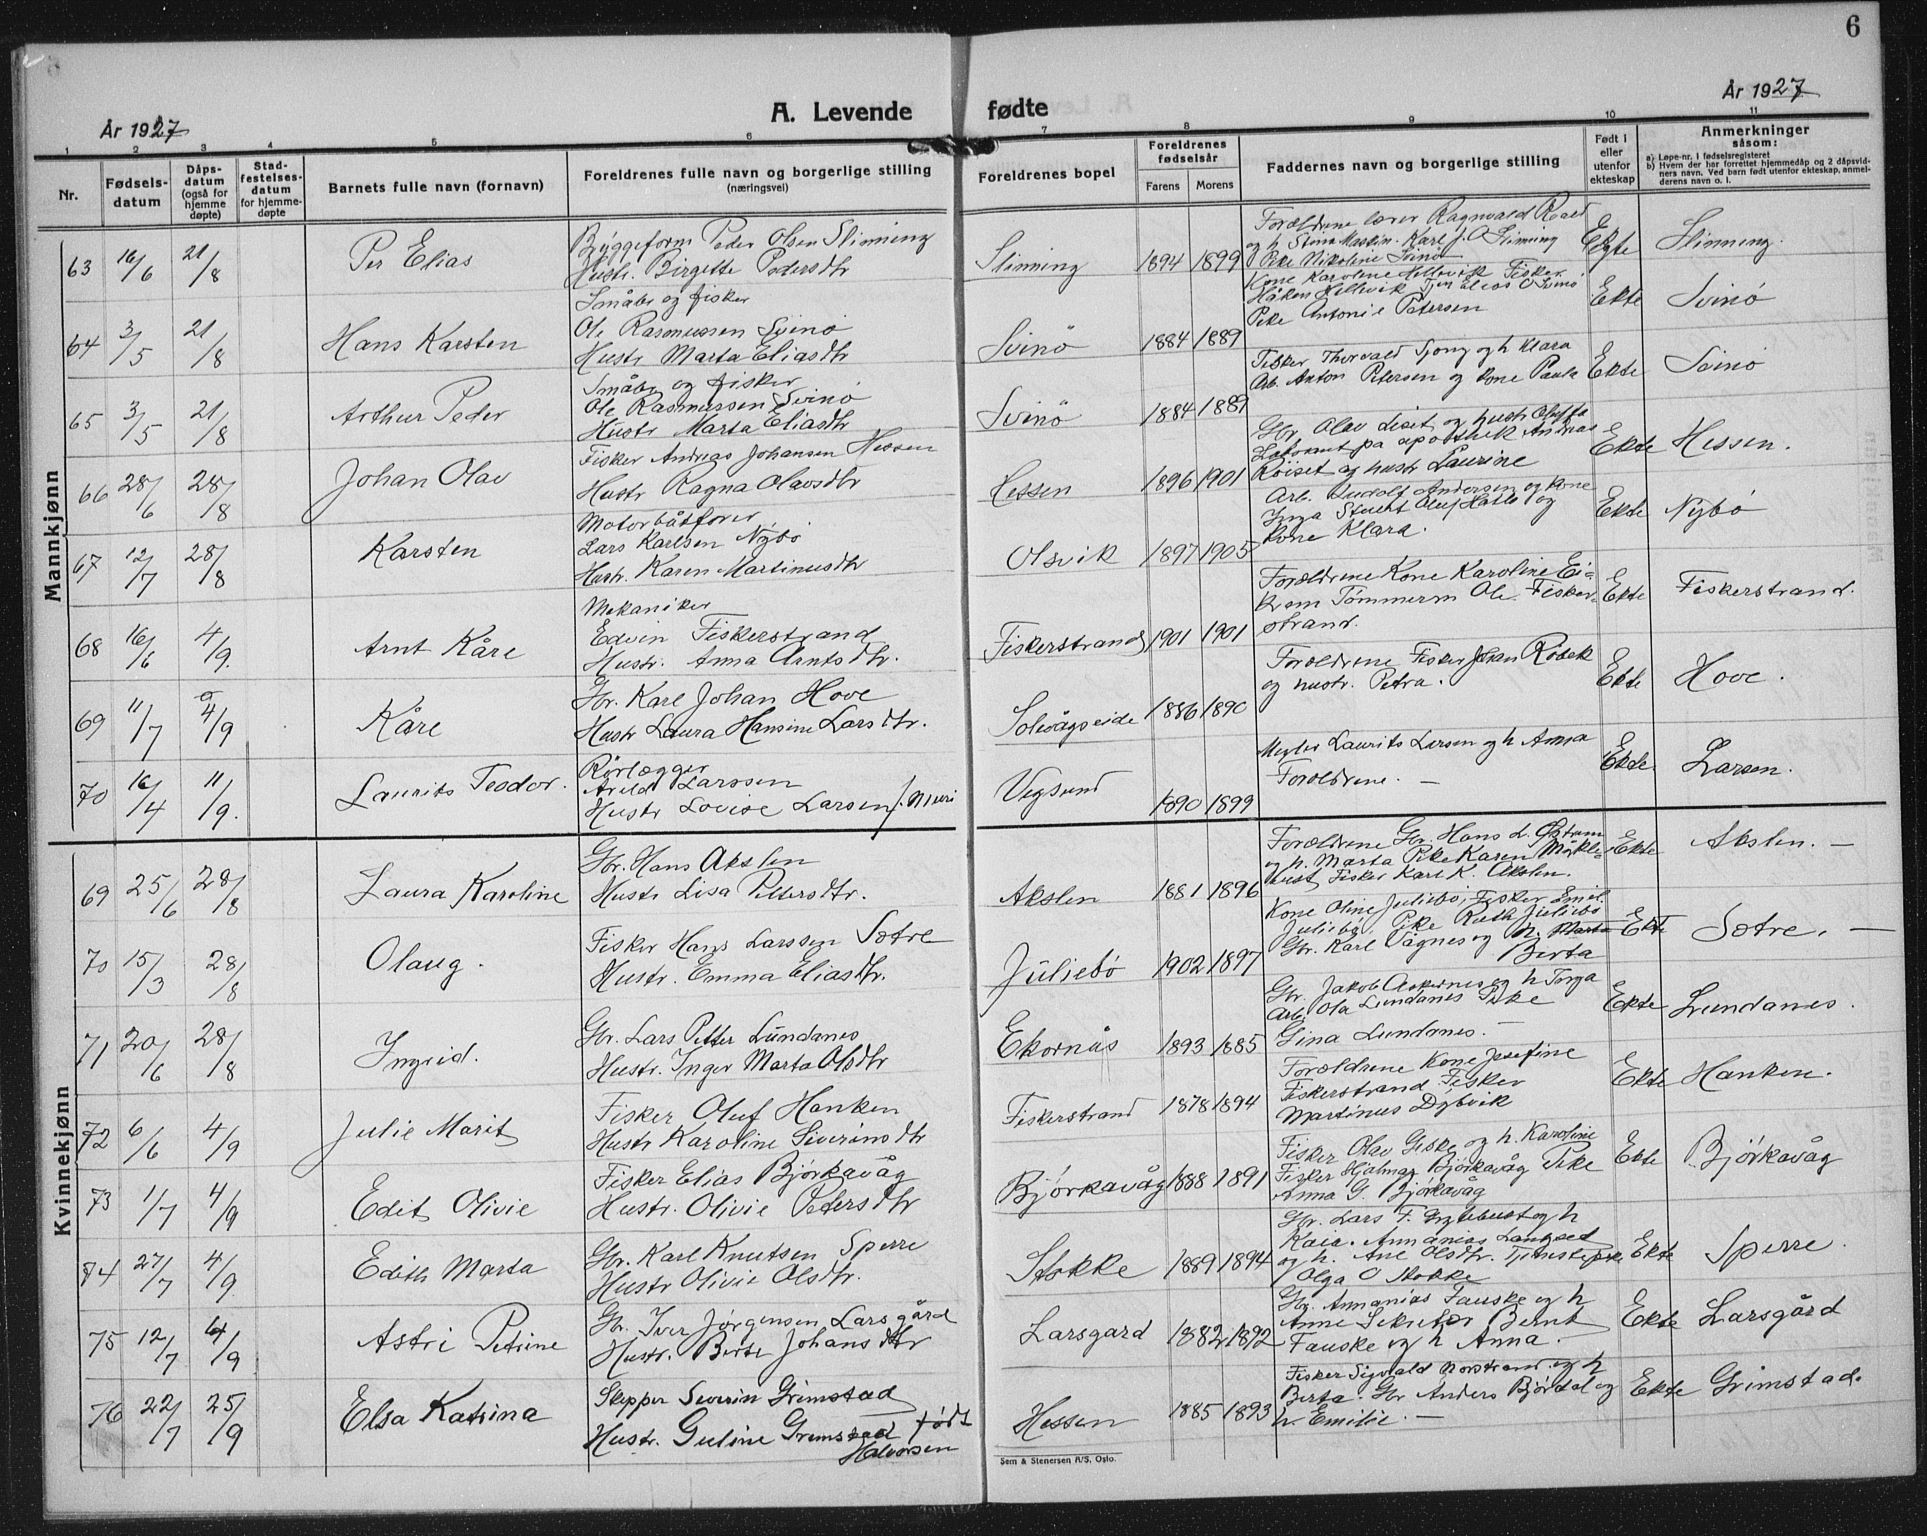 6
År 1927
A. Levende fødte
År 1927
1 2 3 4 5 6 7 8 9 10 11
Nr.
Fødsels-
datum
Dåps-
datum
(også for
hjemme
døpte)
Stad-
festelses-
datum
for hjemme-
døpte
Barnets fulle navn (fornavn)
Foreldrenes fulle navn og borgerlige stilling
(næringsvei)
Foreldrenes bopel
Foreldrenes
fødselsår
Farens Morens
Faddernes navn og borgerlige stilling
Født i
eller
utenfor
ekteskap
Anmerkninger
såsom:
a) Løpe-nr. i fødselsregisteret
b) Hvem der har forrettet hjemmedåp og 2 dåpsvid-
ners navn. Ved barn født utenfor ekteskap, anmel-
derens navn o. l.
Mannkjønn
63 16/6 21/8 Per Elias
Byggeform Peder Olsen Slinning
Hustr. Birgitte Pedersdtr
Slinning 1894 1899
Forældrene lærer Ragnvald Roald
og h Stina Maskin. Karl J. O Slinning
Pike Nikoline Svinø
Ekte Slinning.
64 3/5 21/8 Hans Karsten
Småbr og fisker
Ole Rasmussen Svinø
Hustr Marta Eliasdtr
Svinø 1884 1889
Kone Karoline Hellevik Fisker
Håken Hellevik Elias O Svinø
Pike Antonie Petersen
Ekte Svinø
65 3/5 21/8 Arthur Peder
Småbr og fisker
Ole Rasmussen Svinø
Hustr Marta Eliasdtr
Svinø 1884 1889
Fisker Thorvald Sjong og h Klara
Arb. Anton Petersen og kone Paula
Ekte Svinø
66 28/6 28/8 Johan Olav
Fisker Andreas Johansen Hessen
Hustr Ragna Olavsdtr
Hessen 1896 1901
Gbr. Olav og hustr Oluffa
på apothek Andreas
Röiset og hustr Laurine
Ekte Hessen.
67 12/7 28/8 Karsten
Motorbåtfører
Lars Karlsen Nybø
Hustr. Karen Martinusdtr
Olsvik 1897 1905
Arb. Rudolf Andersen og kone
Inga Oluf og
kone Klara.
Ekte Nybø
68 16/6 4/9. Arnt Kåre
Mekaniker
Edvin Fiskerstrand
Hustr. Anna Arntsdtr.
Fiskerstrand 1901 1901
Forældrene Kone Karoline Ei-
krem Tömmerm Ole Fisker-
strand.
Ekte Fiskerstrand.
69 11/7 4/9 Kåre
Gbr. Karl Johan Hove
Hustr Laura Hansine Larsdtr.
Solevågseide 1886 1890
Forældrene Fisker Johan Robek
og hustr. Petra.
Ekte Hove.
70 16/4 11/9. Laurits Teodor.
Rørlægger
Arild Larssen
Hustr Lovise Larsen f. Muri
Vegsund 1890 1899
Megler Laurits Larsen og h Anna
Forældrene. —
Ekte Larsen.
Kvinnekjønn
69 25/6 28/8 Laura Karoline
Gbr. Hans Akslen
Hustr Lisa Pettersdtr.
Akslen 1881 1896
Forældrene Gbr. Hans L. Østrem
og h. Marta Pike Karen Måkle-
bust Fisker Karl K. Akslen.
Ekte Akslen. —
70 15/3 28/8 Olaug.
Fisker Hans Larssen Sætre
Hustr. Emma Eliasdtr.
Juliebø 1902 1897
Kone Oline Juliebø, Fisker Emil
Juliebø, Pike Ruth Juliebø
Gbr. Karl Vågnes og h. Marta
Berta
Ekte Sætre. —
71 20/6 28/8 Ingrid.
Gbr. Lars Petter Lundanes
Hustr. Inger Marta Olsdtr
Ekornås 1893 1885
Gbr. Jakob Askernes og h Torga
Arb. Ola Lundanes Pike
Gina Lundanes. —
Ekte Lundanes.
72 6/6 4/9 Julie Marit
Fisker Oluf Hanken
Hustr Karoline Siverinsdtr
Fiskerstrand 1878 1894
Forældrene Kone Josefine
Fiskerstrand Fisker
Martinus Dybvik
Ekte Hanken.
73 1/7 4/9 Edit Olivie
Fisker Elias Bjørkavåg
Hustr. Olivie Petersdtr
Bjørkavåg 1888 1891
Fisker Olav Giske og h. Karoline
Fisker Hjalmar Bjørkavåg Pike
Anna G. Bjørkavåg
Ekte Bjørkavåg
74 27/7 4/9 Edith Marta
Gbr. Karl Knutsen Sperre
Hustr Olivie Olsdtr.
Stokke 1889 1894
Gbr. Lars F. Grytebust og h
Kaia. Annanias Langset
og h. Ane Olsdtr. Tjenestepike
Olga O Stokke
Ekte Sperre.
75 12/7 4/9 Astri Petrine
Gbr. Iver Jørgensen Larsgård
Hustr. Berte Johansdtr
Larsgard 1882 1892
Gbr. Annanias Fauske og h
Anne Sekretær Bernt
Fauske og h Anna.
Ekte Larsgård
76 22/7 25/9 Elsa Katrina
Skipper Severin Grimstad
Hustr. Guline Grimstad født
Halvorsen
Hessen 1885 1893
Fisker Sigvald Norstrand og h
Berta. Gbr Anders Bjørdal og
h. Emilie. —
Ekte Grimstad.
Sem & Stenersen A/S, Oslo.